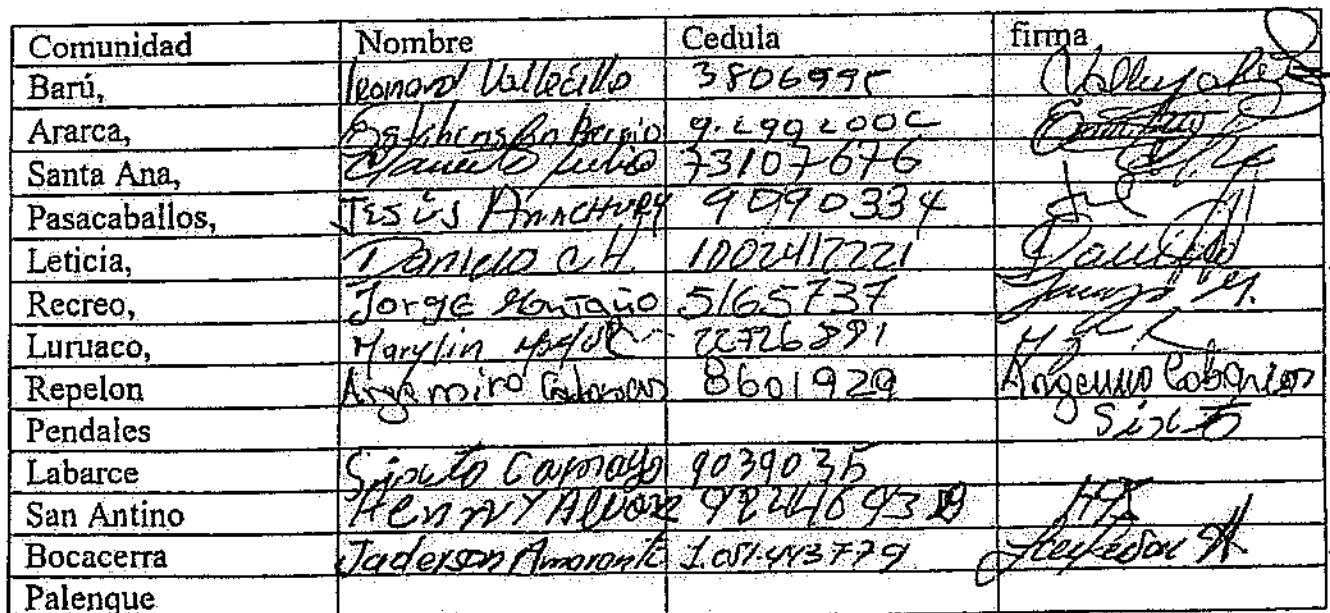 Comunidad Nombre Cedula firma
Barú, Leonard Vallecilla 3806995
Ararca, 9.2902000
Santa Ana, Julio 73107676
Pasacaballos, JESÚS AMACHURY 9090334
Leticia, Danilo C.H. 1002417221 Danilo
Recreo, Jorge Montaño 5165737
Luruaco, Marylin 22726891
Repelon Argemiro Cabarcas 8601929 Argemiro Cabarcas
Pendales Sixto
Labarce Sixto Camargo 9039035
San Antino Henrry Alvarez
Bocacerra Jaderson Amorante 1.051.443779
Palenque